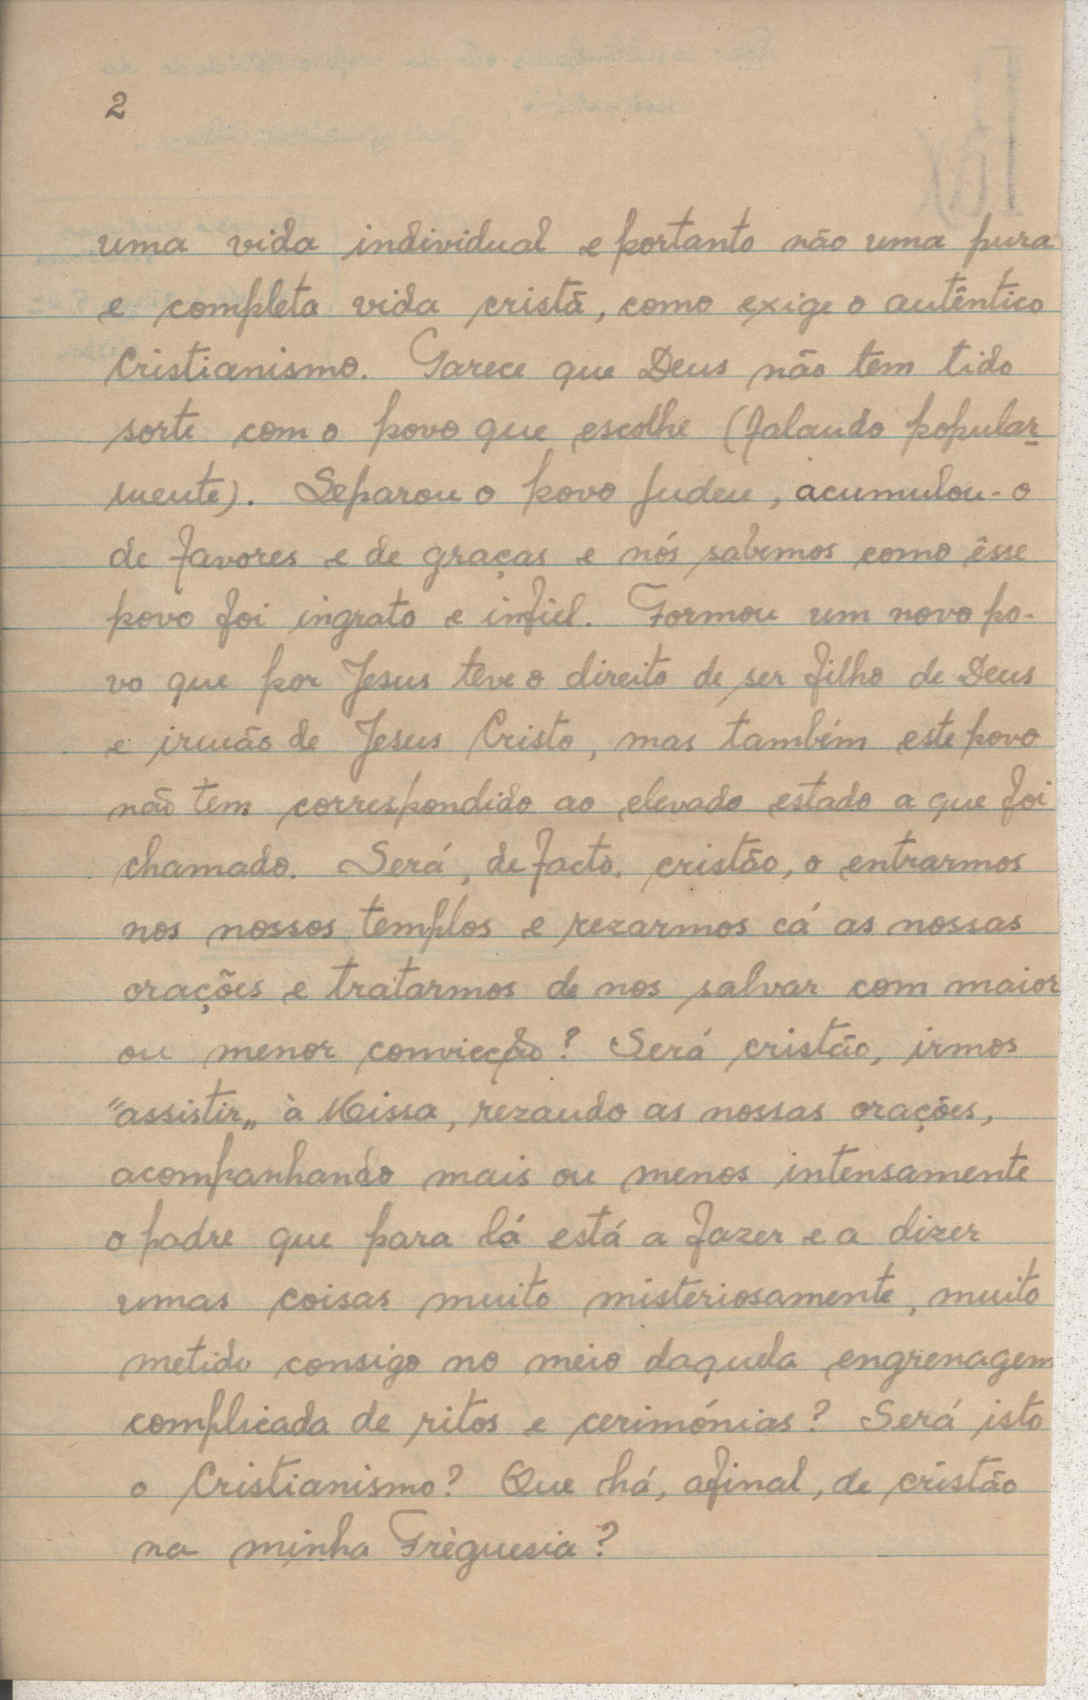 2
uma vida individual e portanto não uma pura
e completa vida cristã, como exige o autêntico
Cristianismo. Parece que Deus não tem tido
sorte com o povo que escolhe (falando popular-
mente). Separou o povo Judeu, acumulou-o
de favores e de graças e nós sabemos como êsse
povo foi ingrato e infiel. Formou um novo po-
vo que por Jesus teve o direito de ser filho de Deus
e irmão de Jesus Cristo, mas também este povo
não tem correspondido ao elevado estado a que foi
chamado. Será, de facto, cristão, o entrarmos
nos nossos templos e rezarmos cá as nossas
orações e tratarmos de nos salvar com maior
ou menor convicção? Será cristão, irmos
"assistir" à Missa, rezando as nossas orações,
acompanhando mais ou menos intensamente
o padre que para lá está a fazer e a dizer
umas coisas muito misteriosamente, muito
metido consigo no meio daquela engrenagem
complicada de ritos e cerimónias? Será isto
o Cristianismo? Que há, afinal, de cristão
na minha Frèguesia?